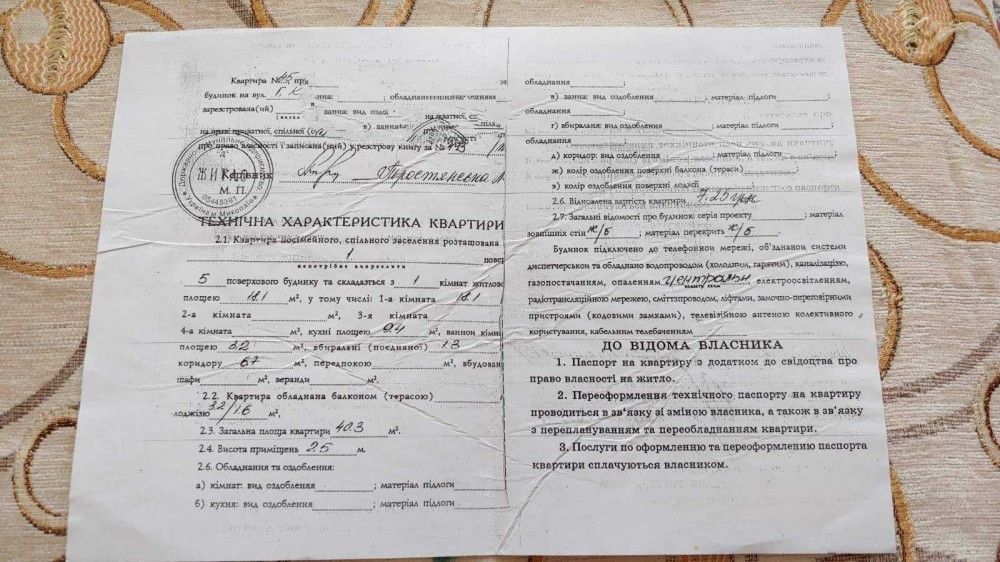 Квартира № 45 при
будинок на вул. Г. К
; обладнання
зареєстрована(ий)
ванна: вид оздоб
на праві приватної, спільної
в) ванна:
про право власності і записана(ий) у реєстрову книгу за №
Керівник Простянська
М. П.
ЖИТЛО
05448391
Україна м Миколаїв
ТЕХНІЧНА ХАРАКТЕРИСТИКА КВАРТИРИ
2.1. Квартира посімейного, спільного заселення розташована
1 повер
непотрібне викреслити
5 поверхового будинку та складається з 1 кімнат житлово
площею 18.1 м², у тому числі: 1-а кімната 18.1
2-а кімната м², 3-я кімната
4-а кімната м², кухні площею 9.4 м², ванної кімн
площею 3.2 м², вбиральні (поєднаної) 1.3
коридору 6.7 м², передпокою м², вбудован
шафи м², веранди м².
2.2. Квартира обладнана балконом (терасою)
лоджією 3.2/1.6 м²,
2.3. Загальна площа квартири 40.3 м².
2.4. Висота приміщень 2.5 м.
2.6. Обладнання та оздоблення:
а) кімнат: вид оздоблення ; матеріал підлоги
б) кухня: вид оздоблення ; матеріал підлоги
обладнання ;
в) ванна: вид оздоблення ; матеріал підлоги
обладнання ;
г) вбиральня: вид оздоблення ; матеріал підлоги
обладнання ;
д) коридор: вид оздоблення ; матеріал підлоги
ж) колір оздоблення поверхні балкона (тераси) ;
з) колір оздоблення поверхні лоджії
2.6. Відновлена вартість квартири 7.25 грн
2.7. Загальні відомості про будинок: серія проекту ; матеріал
зовнішніх стін ж/б ; матеріал перекрить ж/б .
Будинок підключено до телефонної мережі, об'єднаної системи
диспетчерською та обладнано водопроводом (холодним, гарячим), каналізацією,
газопостачанням, опаленням центральн електроосвітленням,
радіотрансляційною мережею, сміттєпроводом, ліфтами, замочно-переговорними
пристроями (кодовими замками) , телевізійною антеною колективного
користування, кабельним телебаченням
ДО ВІДОМА ВЛАСНИКА
1. Паспорт на квартиру з додатком до свідоцтва про
право власності на житло.
2. Переоформлення технічного паспорту на квартиру
проводиться в зв'язку зі зміною власника, а також в зв'язку
з переплануванням та переобладнанням квартири.
3. Послуги по оформленню та переоформленню паспорта
квартири сплачуються власником.